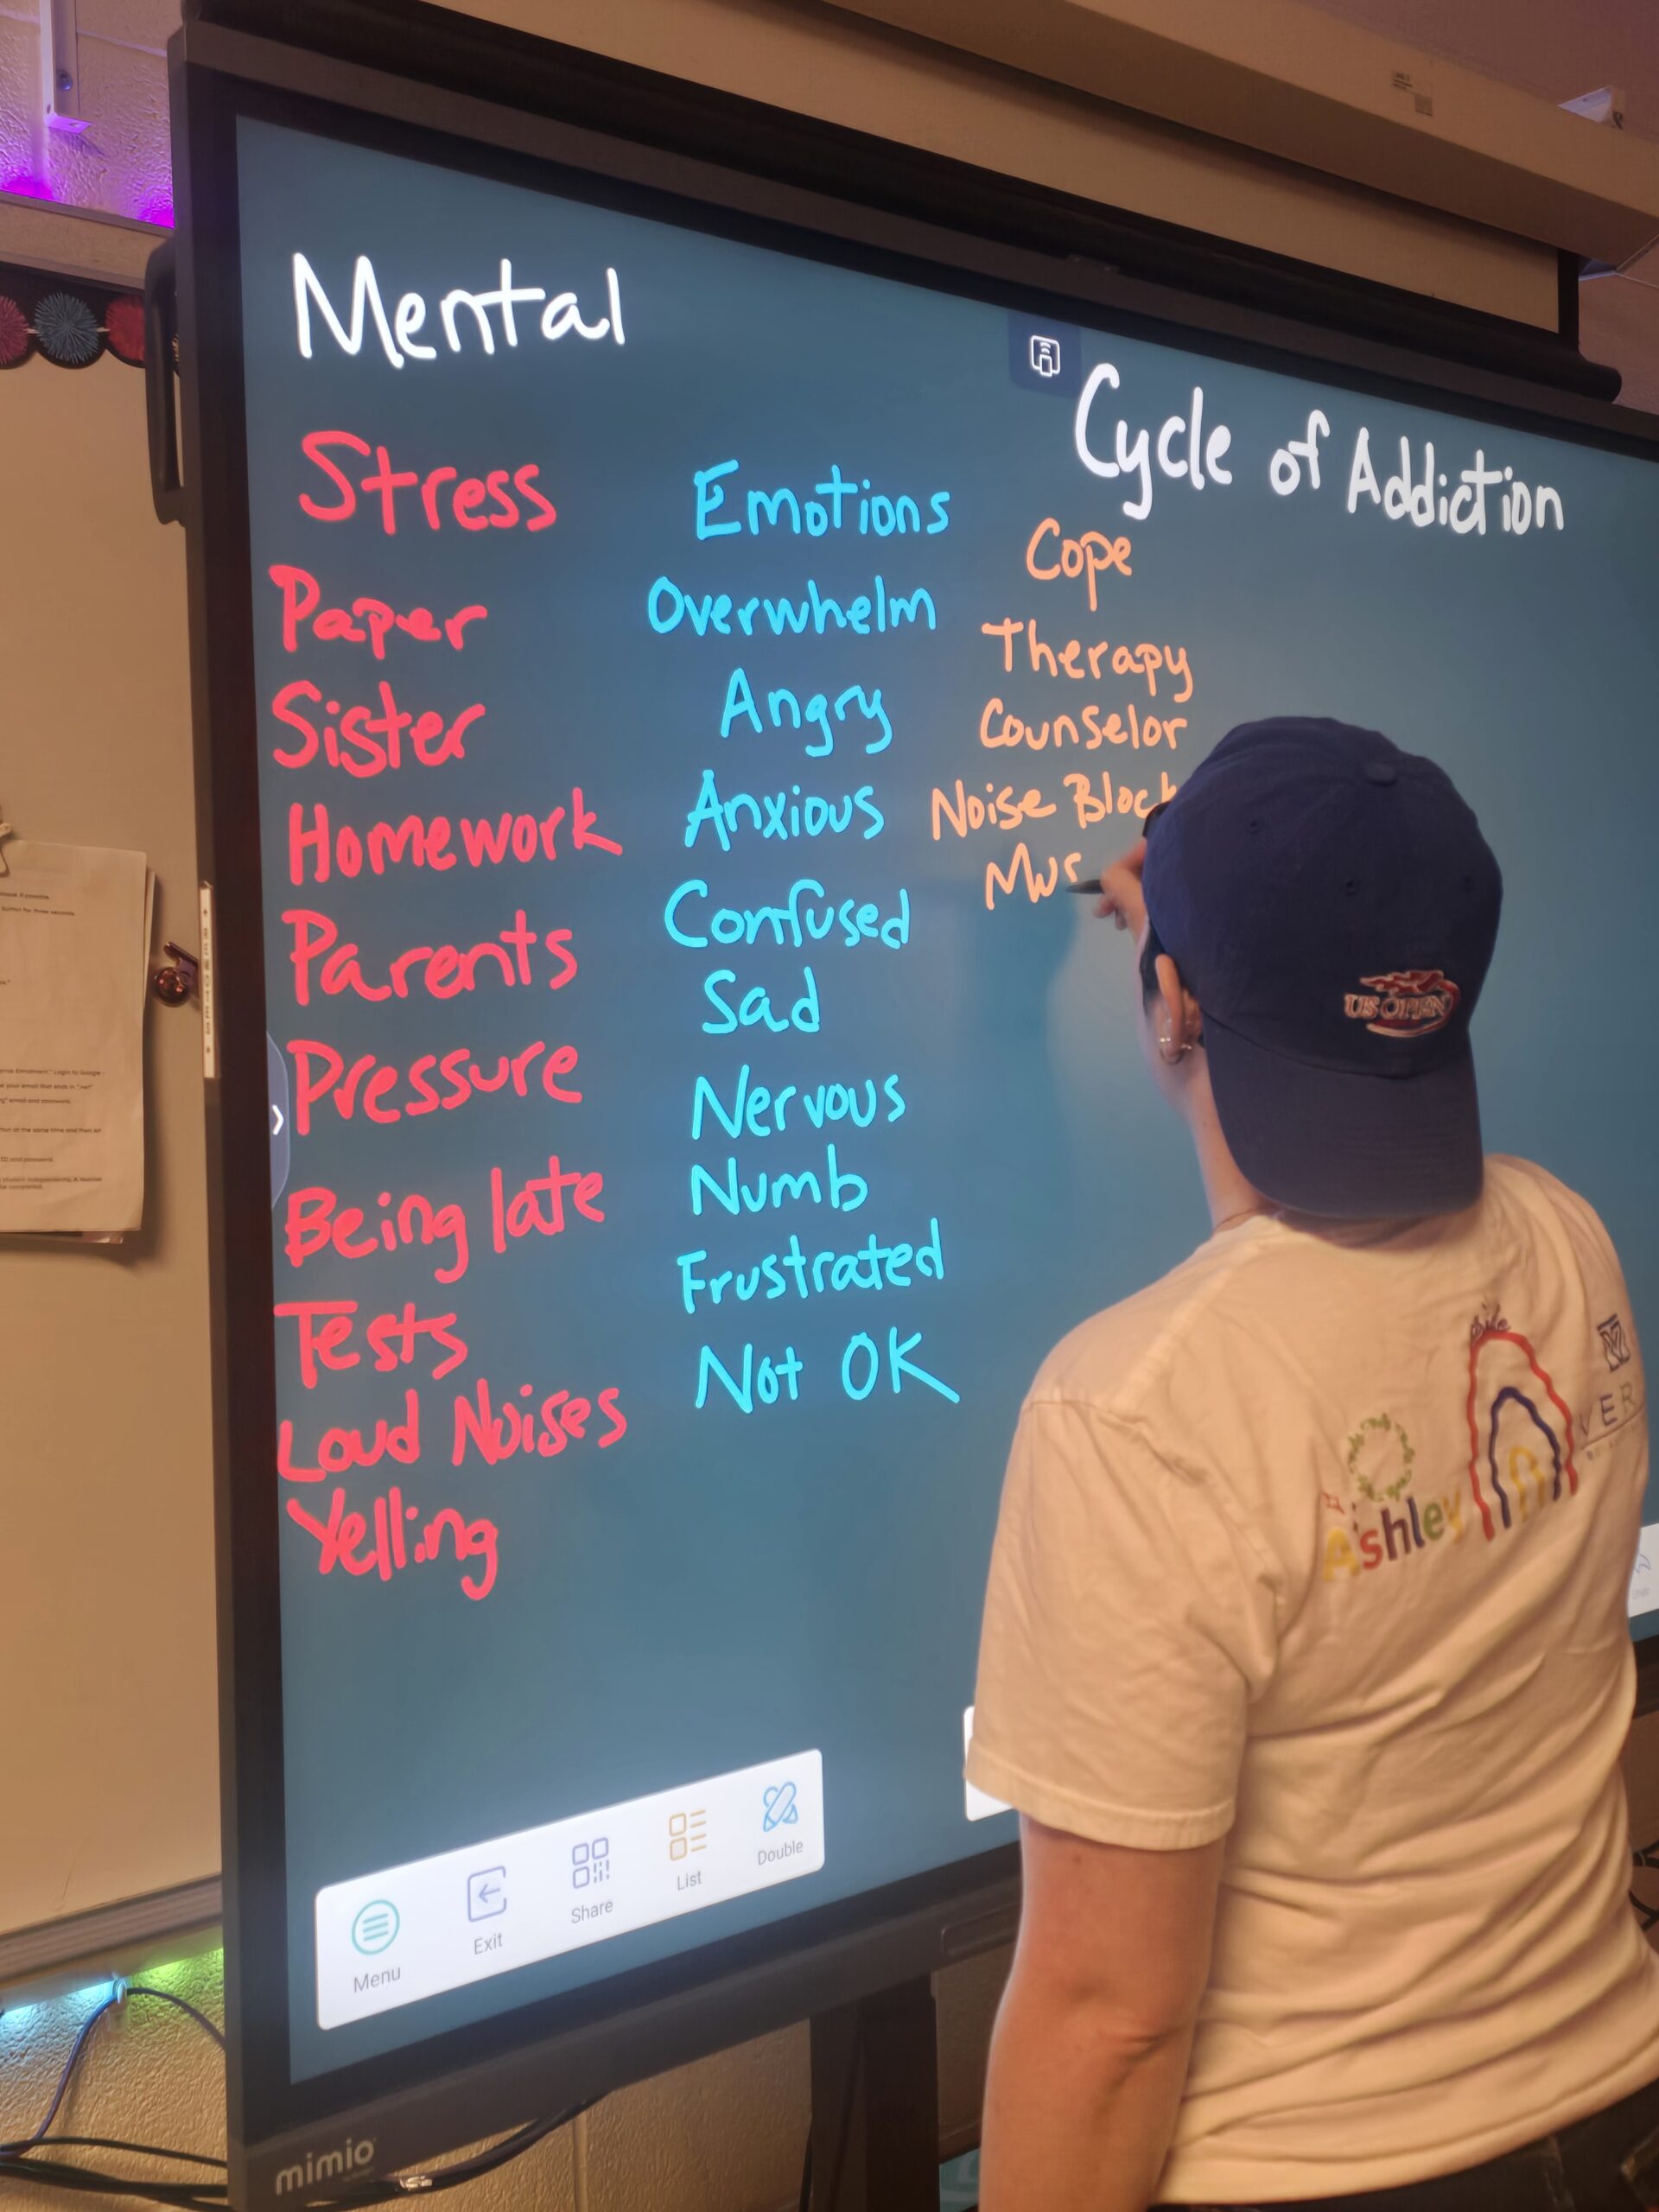 Mental
Cycle of Addiction
Stress
Paper
Sister
Homework
Parents
Pressure
Being late
Tests
Loud Noises
Yelling
Emotions
Overwhelm
Angry
Anxious
Confused
Sad
Nervous
Numb
Frustrated
Not OK
Cope
Therapy
Counselor
Noise Block
Mus
US OPEN
Ashley
Menu
Exit
Share
List
Double
mimio